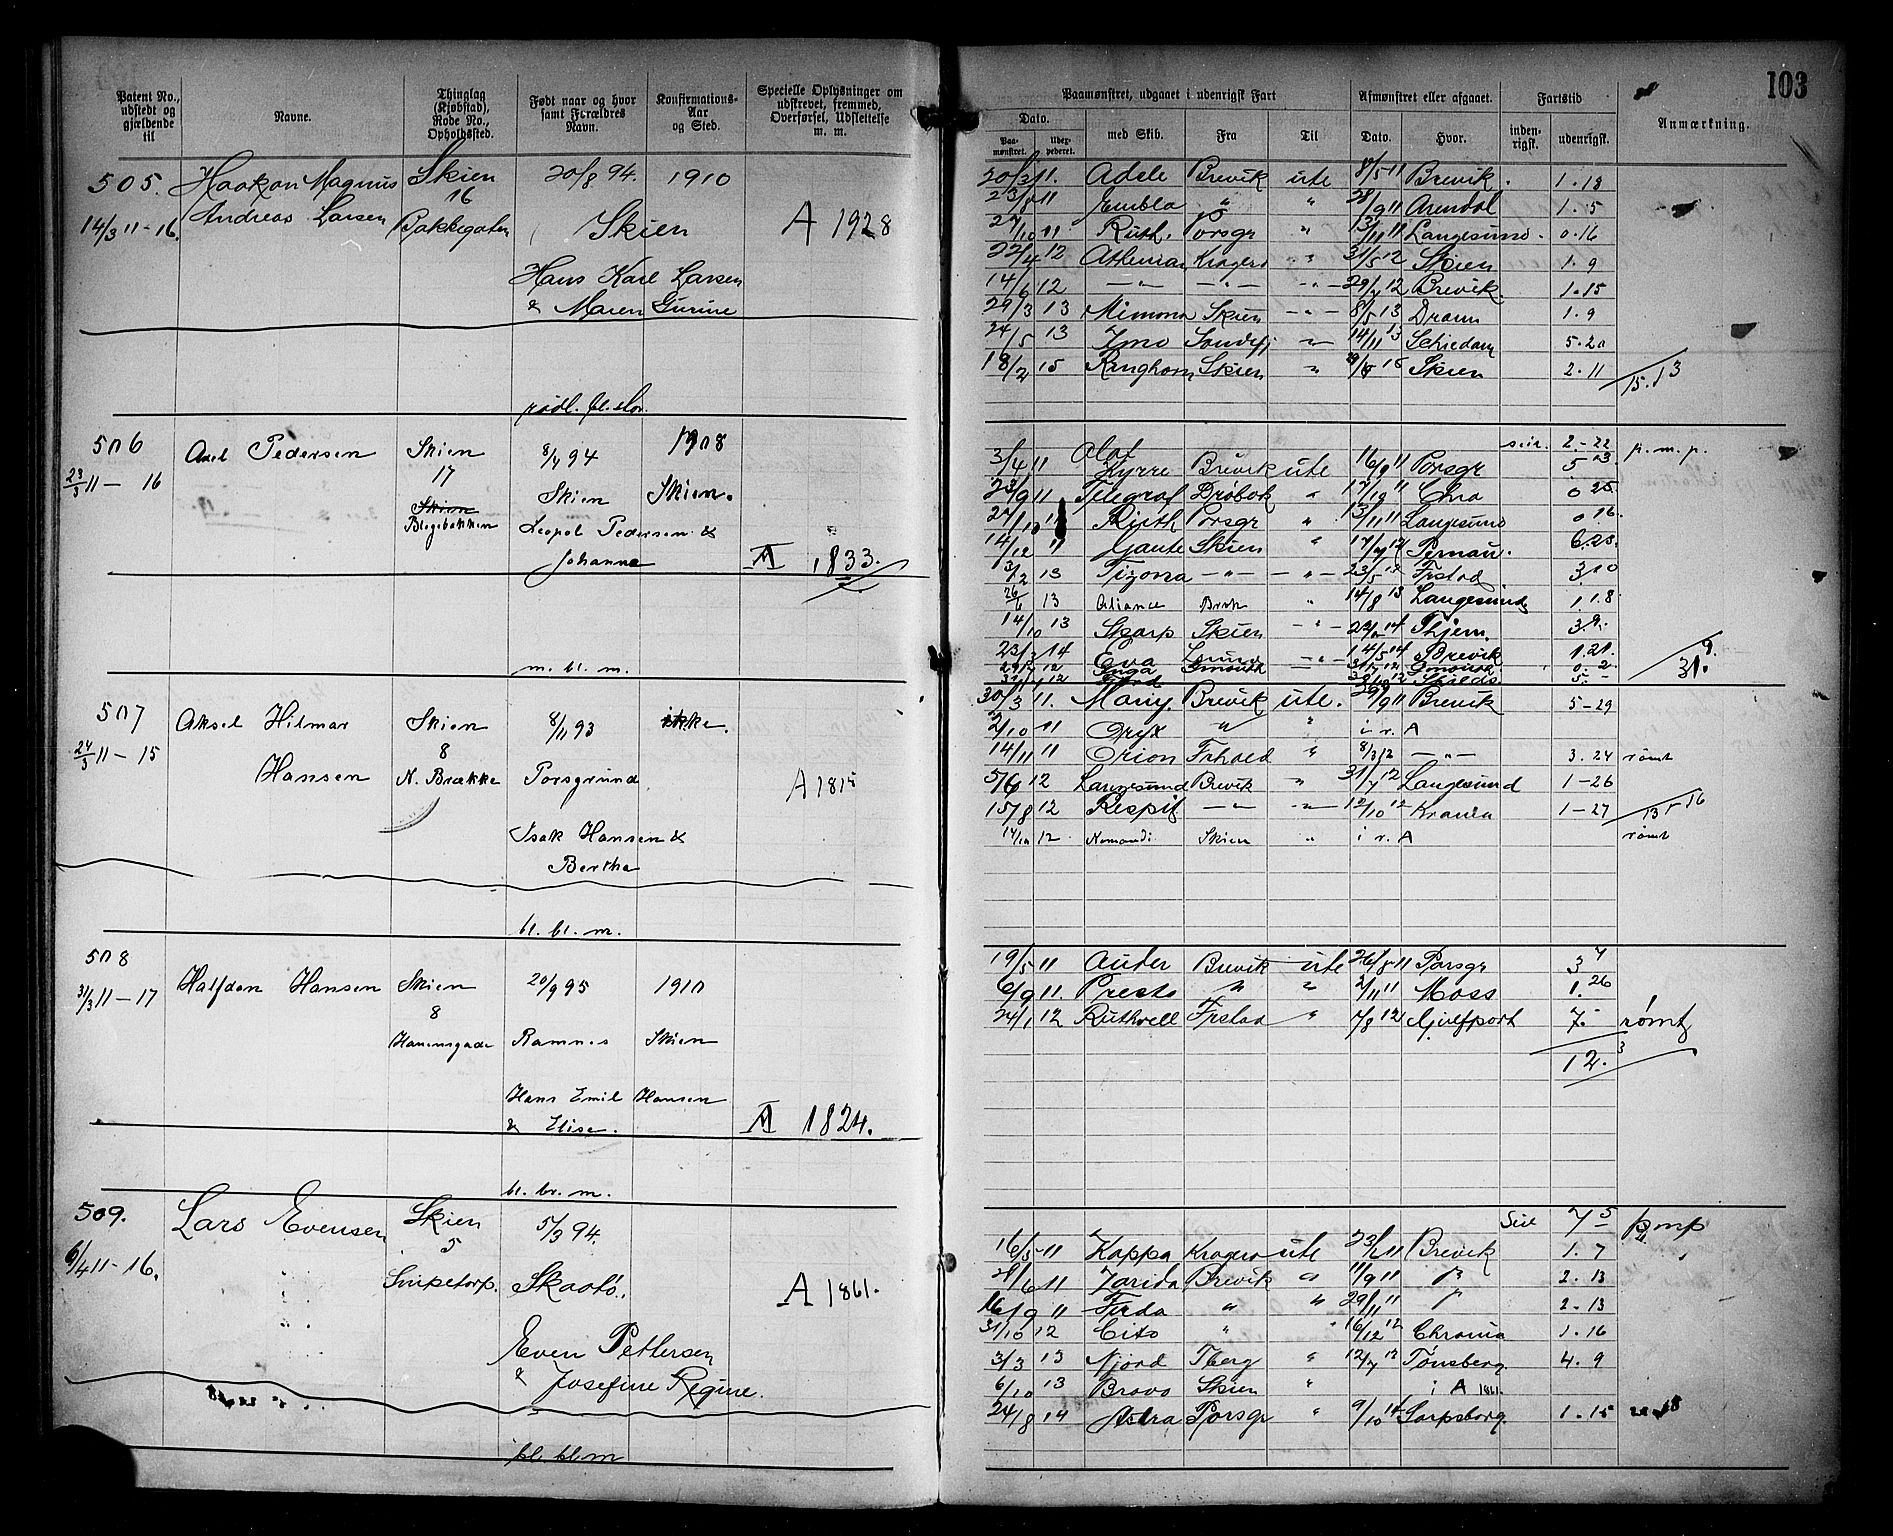 103
Patent No., udstedt og gjældende til
Navne.
Thinglag (Kjøbstad), Rode No., Opholdssted.
Født naar og hvor samt Forældres Navn.
Konfirmations-Aar og Sted.
Specielle Oplysninger om udskrevet, fremmed, Overførsel, Udslettelse m. m.
Paamønstret, udgaaet i udenrigsk Fart
Afmønstret eller afgaaet.
Fartstid
Anmærkning.
Dato.
Paamønstret.
med Skib.
Fra
Til
Dato.
Hvor.
indenrigsk.
udenrigsk.
505. Haakon Magnus Skien 20/8 94. 1910
16
14/3 11-16. Andreas Larsen Bakkegaten Skien A 1928
Hans Karl Larsen
& Maren Gurine
rødl. bl. stor.
Adele Brevik ute 8/5 11 Brevik. 1.18
23/8 11 Embla " " Arendal 1.5
27/10 11 Ruth. Porsgr " 13/11 11 Langesund. 0.16
22/4 12 Athenian Kragerø " 31/5 12 Skien 1.9
14/6 12 —"— —"— —"— 29/7 12 Brevik. 1.15
29/3 13 Mimona Skien —"— 8/5 13 Dram 1.9
24/5 13 Imo Sandefj " 14/11 13 Schiedam 5.20
18/2 15 Ranghorn Skien " Skien 2.11
15.13
506 Axel Pedersen Skien 8/4 94 1908
17
23/3 11- 16 Skien Skien.
Blegebakken Leopol Pedersen &
Johanne A 1833.
m. bl. m.
2-22 p. m. p.
3/4 11 Olaf Kyrre Brevik ute 16/9 11 Porsgr 5
23/9 11 Telegraf Drøbak " 0 25.
27/10 11 Ruth Porsgr " 13/11 11 Langesund 0 16.
14/12 11 Gante Skien " Pernau. 6.23.
13/2 13 Tizona —"— —"— 23/5 Frstad 3 10
26/6 13 Aliance Brvk " 14/8 13 Langesund 1 1.8
14/10 13 Skarp Skien —"— Thjem. 3.9.
23/3 14 Eva —"— 14/5 14 Brevik 1.21.
31. 9.
507 Aksel Hilmar Skien 8/11 93 ikke.
8
24/3 11- 15 Hansen N. Brække Porsgrund A 1815
Isak Hansen &
Bertha
bl. bl. m.
30/3 11. Mariy Brevik ute. 29/9 11 Brevik 5-29
2/10 11 Oryx " " i r. A
14/11 11 Orion Frhald " 8/3 12 —"— 3.24 rømt
5/6 12 Langesund Brevik " 31/7 12 Langesund 1-26
15/8 12 Respit —"— —"— 12/10 12 Krania 1-27
14/10 12. Nomandi Skien " i r. A rømt
508 Halfdan Hansen Skien 20/9 95 1910
8
31/3 11-17 Hauensgade Ramnes Skien
Hans Emil Hansen
& Elise. A 1824.
bl. br. m.
19/5 11 Auter Brevik ute 26/8 11 Porsgr 3 7
6/9 11. Presto " " 2/11 11 Moss 1. 26
24/1 12 Ruthwell Frstad " 7/8 12 Gulfport 7. rømt
12. 3
509. Lars Evensen Skien 5/3 94.
5
6/4 11-16. Snipetorp. Skaatø. A 1861.
Even Pettersen
& Josefine Regine.
bl. bl. m
7 5 pmp
16/5 11 Kappa Kragerø ute 23/6 11 Brevik 1. 7
Farida Brevik " 11/9 11 " 2. 13
16/9 11 Firda " " 29/11 11 " 2-13
31/10 12 Cito " " 16/12 12 Chrania 1.16
3/3 13 Njord Tberg " 12/7 Tønsberg. 4. 9
6/10 13 Bravo Skien " i A 1861.
24/8 14 Astra Porsgr " 9/10 14 Sarpsborg. 1.15